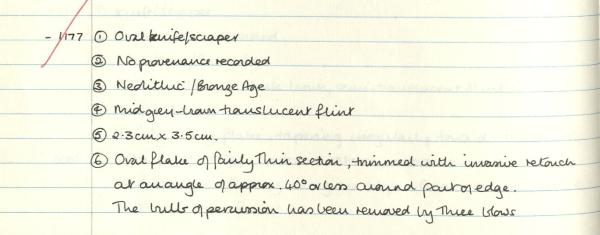 - 1177 ① Oval knife/scraper
② No provenance recorded
③ Neolithic / Bronze Age
④ Mid grey-brown translucent flint
⑤ 2.3cm x 3.5cm.
⑥ Oval flake of fairly thin section, trimmed with invasive retouch
at an angle of approx. 40° or less around part of edge.
The bulb of percussion has been removed by three blows